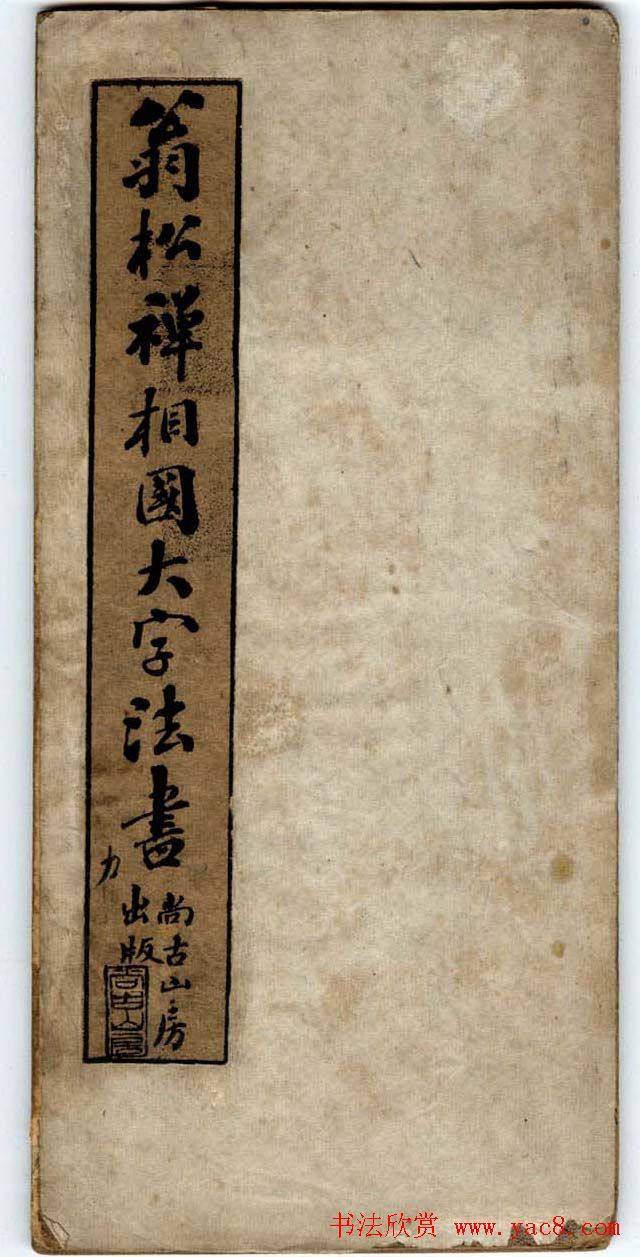 翁松禪相國大字法書
尚古山房
出版
力
尚古山房
书法欣赏 www.yac8.com